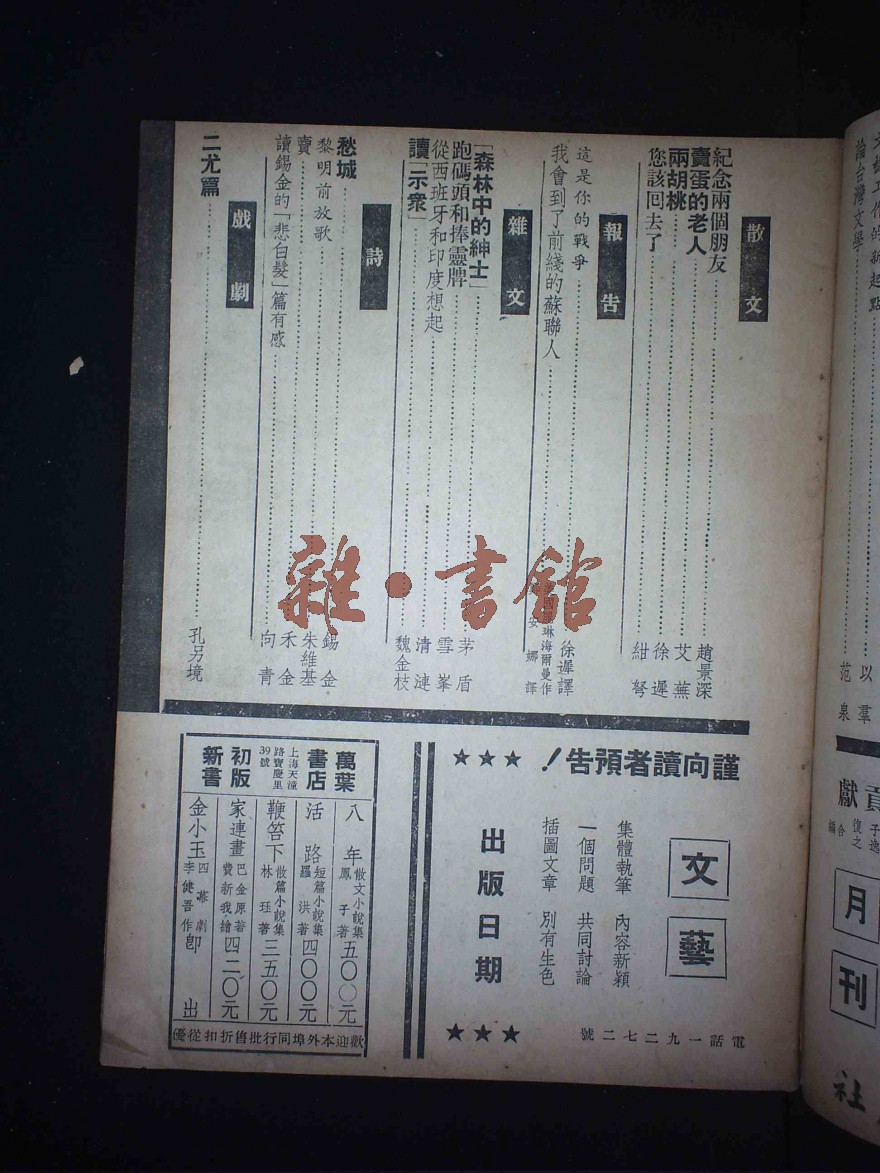 文藝工作的新起點
論台灣文學
以羣
范泉
散文
紀念兩個朋友 趙景深
賣蛋的老人 艾蕪
兩胡桃 徐遲
您該回去了 紺弩
報告
這是你的戰爭 徐遲譯
我會到了前綫的蘇聯人
琳海爾曼作
安娜譯
雜文
「森林中的紳士」 茅盾
跑碼頭和捧靈牌 雪峯
從西班牙和印度想起 清漣
讀「示衆」 魏金枝
詩
愁城 錫金
黎明前放歌 朱維基
賣 禾金
讀錫金的「悲白髮」篇有感 向青
戲劇
二尤篇 孔另境
雜·書館
謹向讀者預告!
文藝
集體執筆 內容新穎
一個問題 共同討論
插圖文章 別有生色
★★★ 出版日期 ★★★
電話一九二七二號
貢獻
月刊
社
萬葉書店
上海天潼路寶慶里39號
初版新書
八年 散文小說集 鳳子著 五〇〇元
活路 短篇小說集 羅洪著 四〇〇元
鞭笞下 散篇小說集 林珏著 三五〇元
家連畫 巴金原著 費新我繪 四二〇元
金小玉 四幕劇 李健吾作 即出
歡迎本外埠同行批售折扣從優